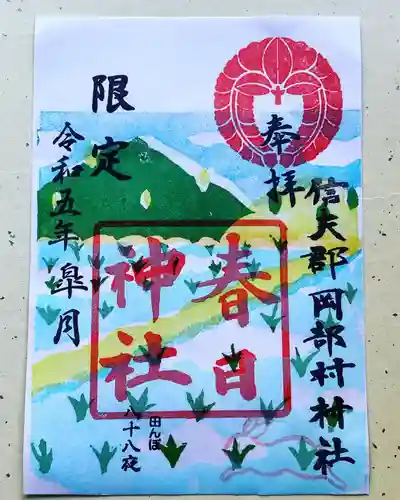 奉拝
信夫郡岡部村神社
春日
神社
限定
令和五年皐月
田んぼ
八十八夜